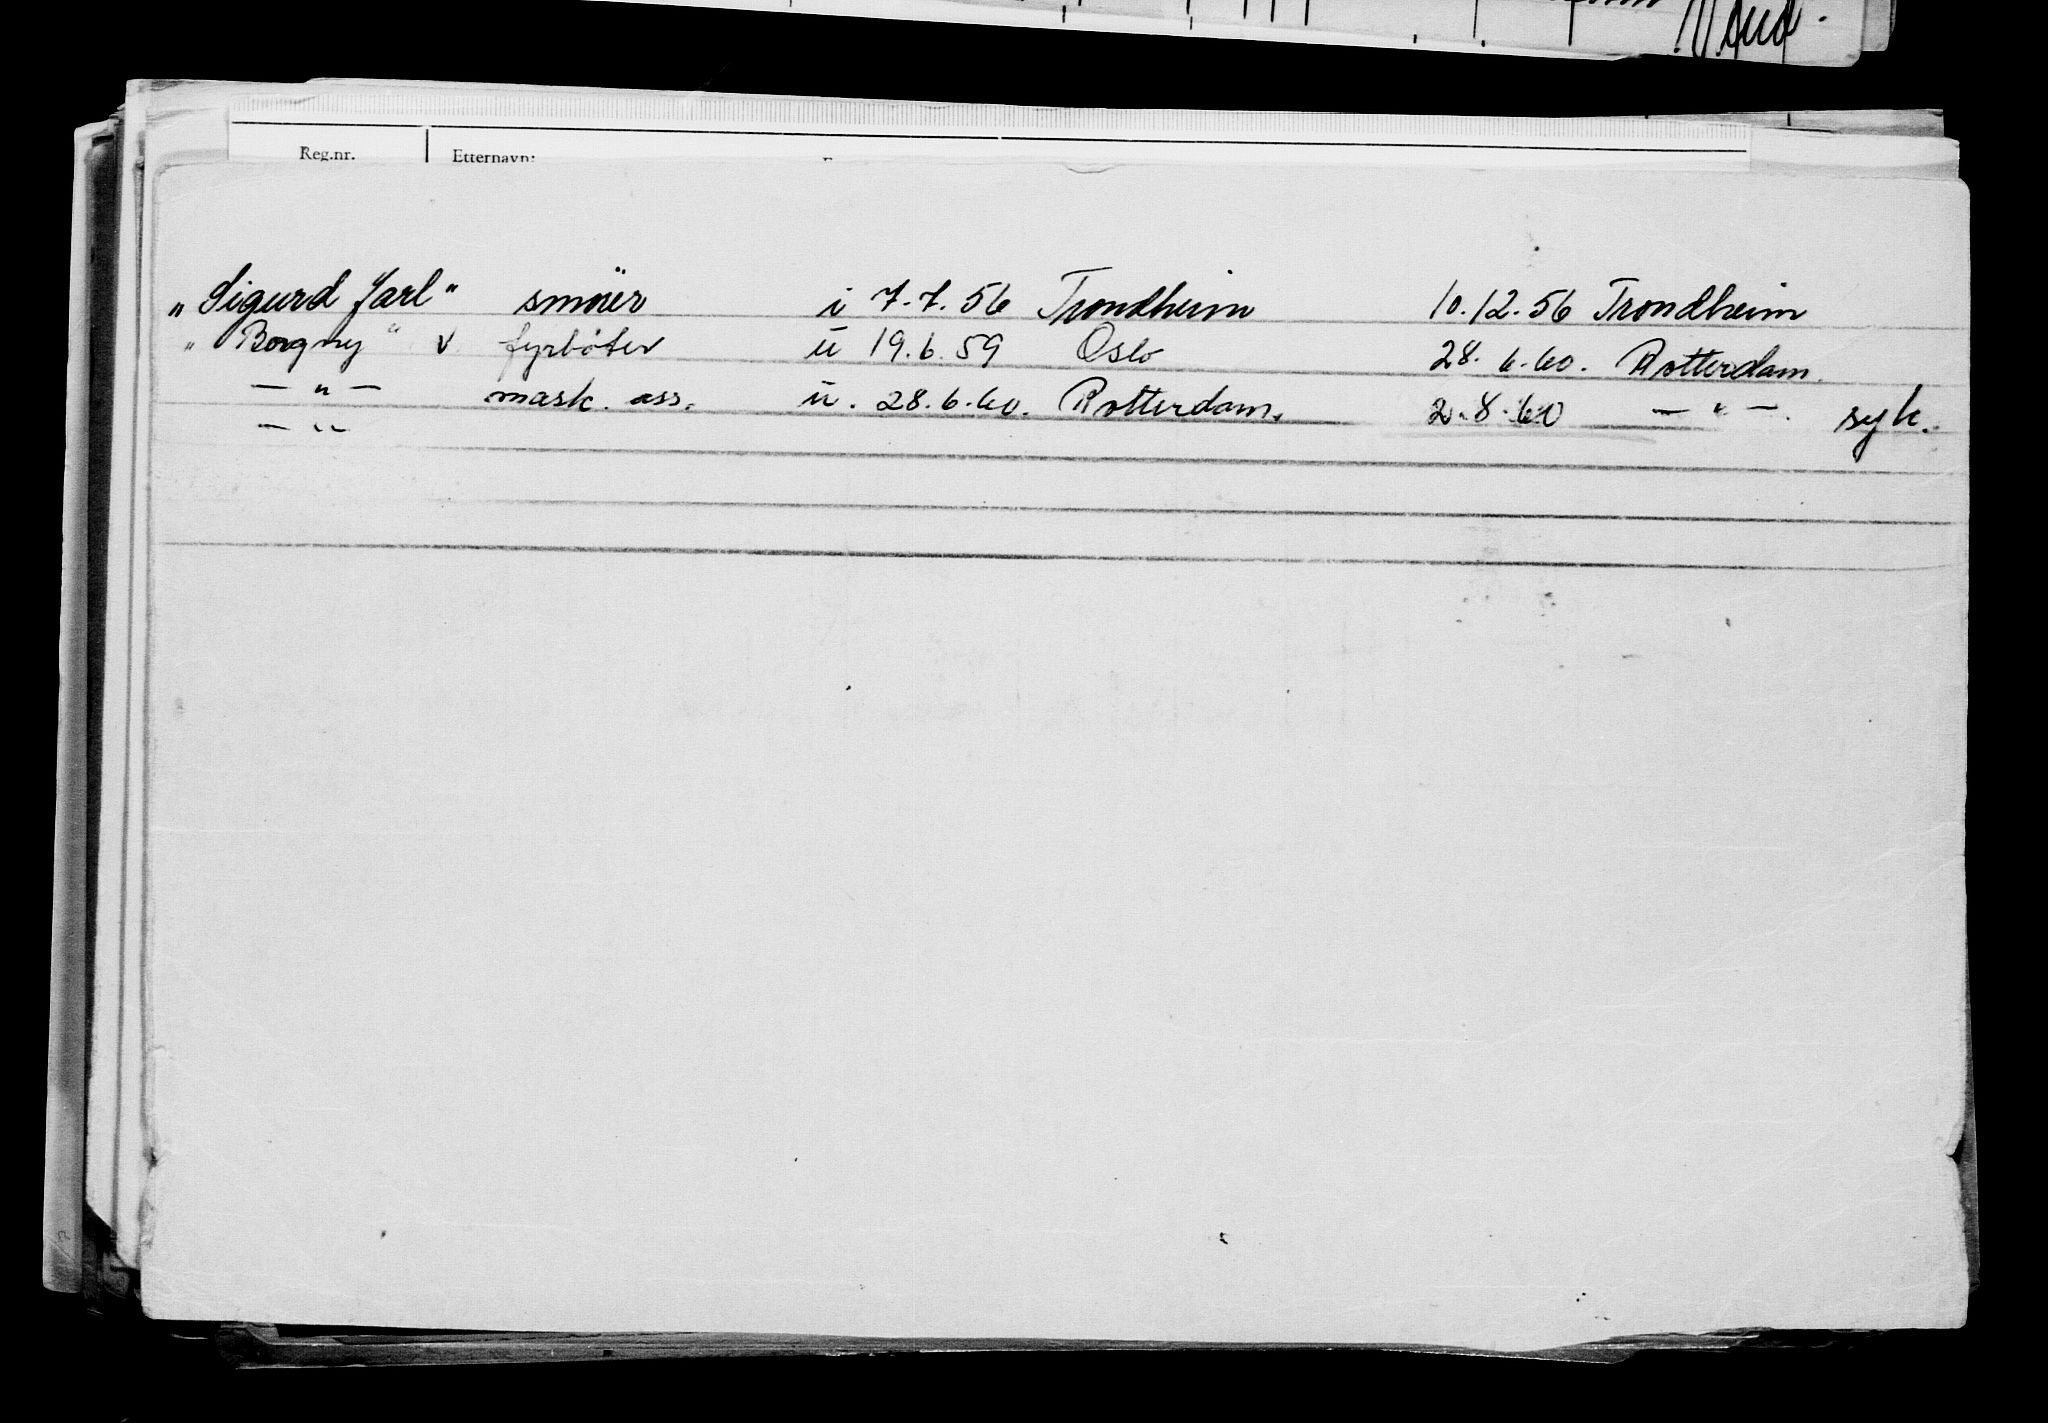 Reg.nr. Etternavn:
„Sigurd Jarl" smører i 7.7.56 Trondheim 10.12.56 Trondheim
„Borgny" v fyrbøter u 19.6.59 Oslo 28.6.60. Rotterdam.
— " — mask. ass. u. 28.6.60. Rotterdam. 2.8.60 — " —. syk.
— " —